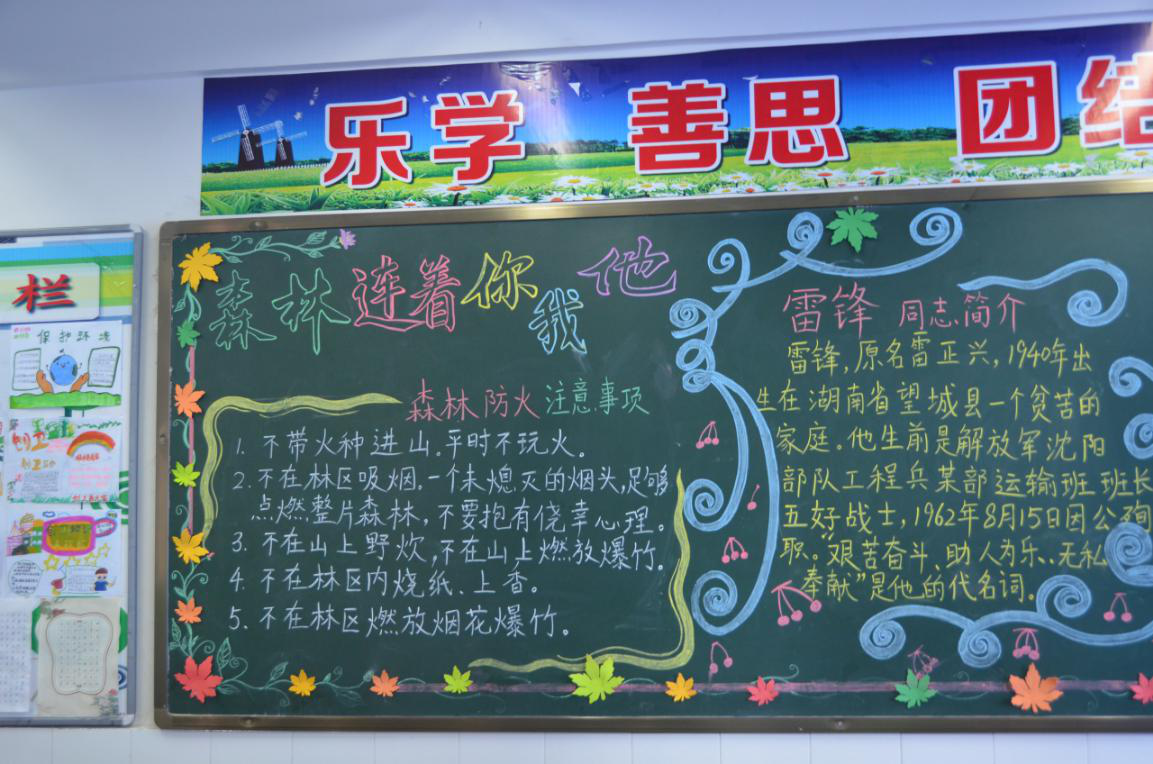 乐学 善思 团结
栏
保护环境
创卫
森林连着你我他
森林防火注意事项
1. 不带火种进山。平时不玩火。
2. 不在林区吸烟,一个未熄灭的烟头,足够
点燃整片森林,不要抱有侥幸心理。
3. 不在山上野炊,不在山上燃放爆竹。
4. 不在林区内烧纸、上香。
5. 不在林区燃放烟花爆竹。
雷锋 同志简介
雷锋,原名雷正兴,1940年出
生在湖南省望城县一个贫苦的
家庭。他生前是解放军沈阳
部队工程兵某部运输班班长
五好战士,1962年8月15日因公殉
职。"艰苦奋斗、助人为乐、无私
奉献"是他的代名词。